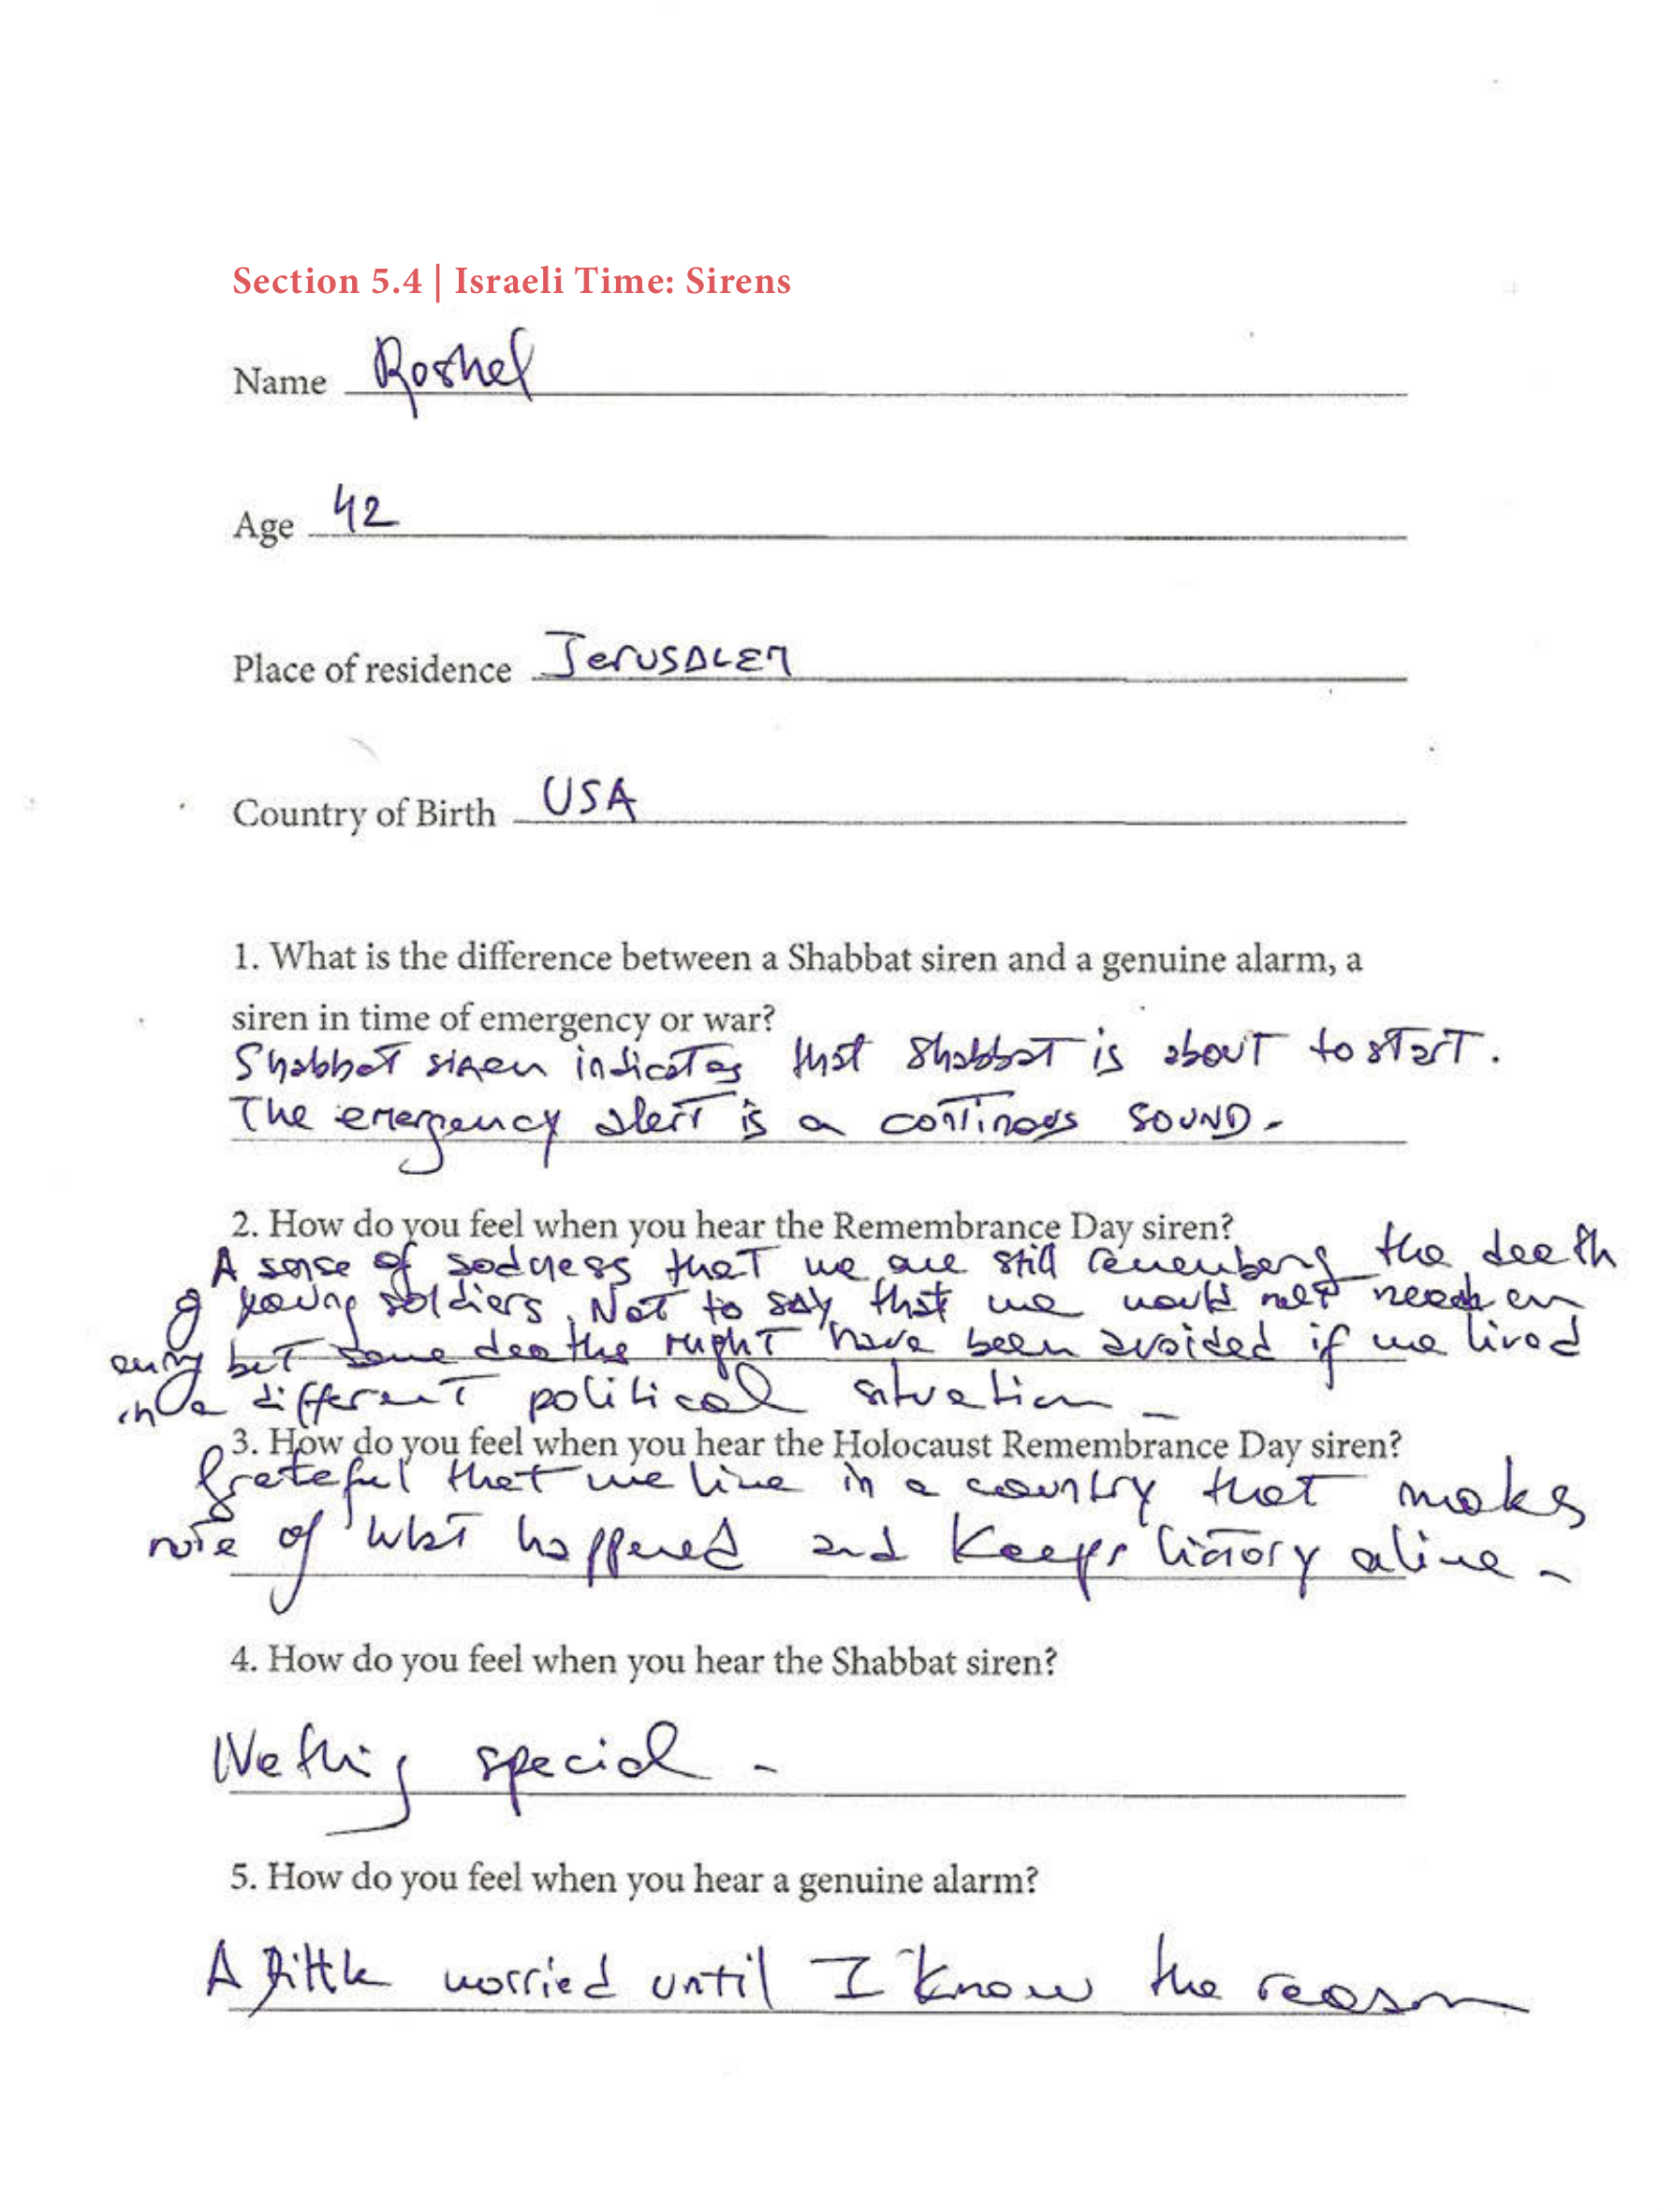 Section 5.4 | Israeli Time: Sirens
Name Roshel
Age 42
Place of residence JerUSALEM
Country of Birth USA
1. What is the difference between a Shabbat siren and a genuine alarm, a
siren in time of emergency or war?
Shabbat siren indicates that Shabbat is about to start.
The emergency alert is a continous SOUND.
2. How do you feel when you hear the Remembrance Day siren?
A sense of sadness that we are still remembering the death
of young soldiers. Not to say that we would not need an
army but some deaths might have been avoided if we lived
in a different political situation
3. How do you feel when you hear the Holocaust Remembrance Day siren?
Grateful that we live in a country that makes
note of what happened and keeps history alive.
4. How do you feel when you hear the Shabbat siren?
Nothing special.
5. How do you feel when you hear a genuine alarm?
A little worried until I know the reason